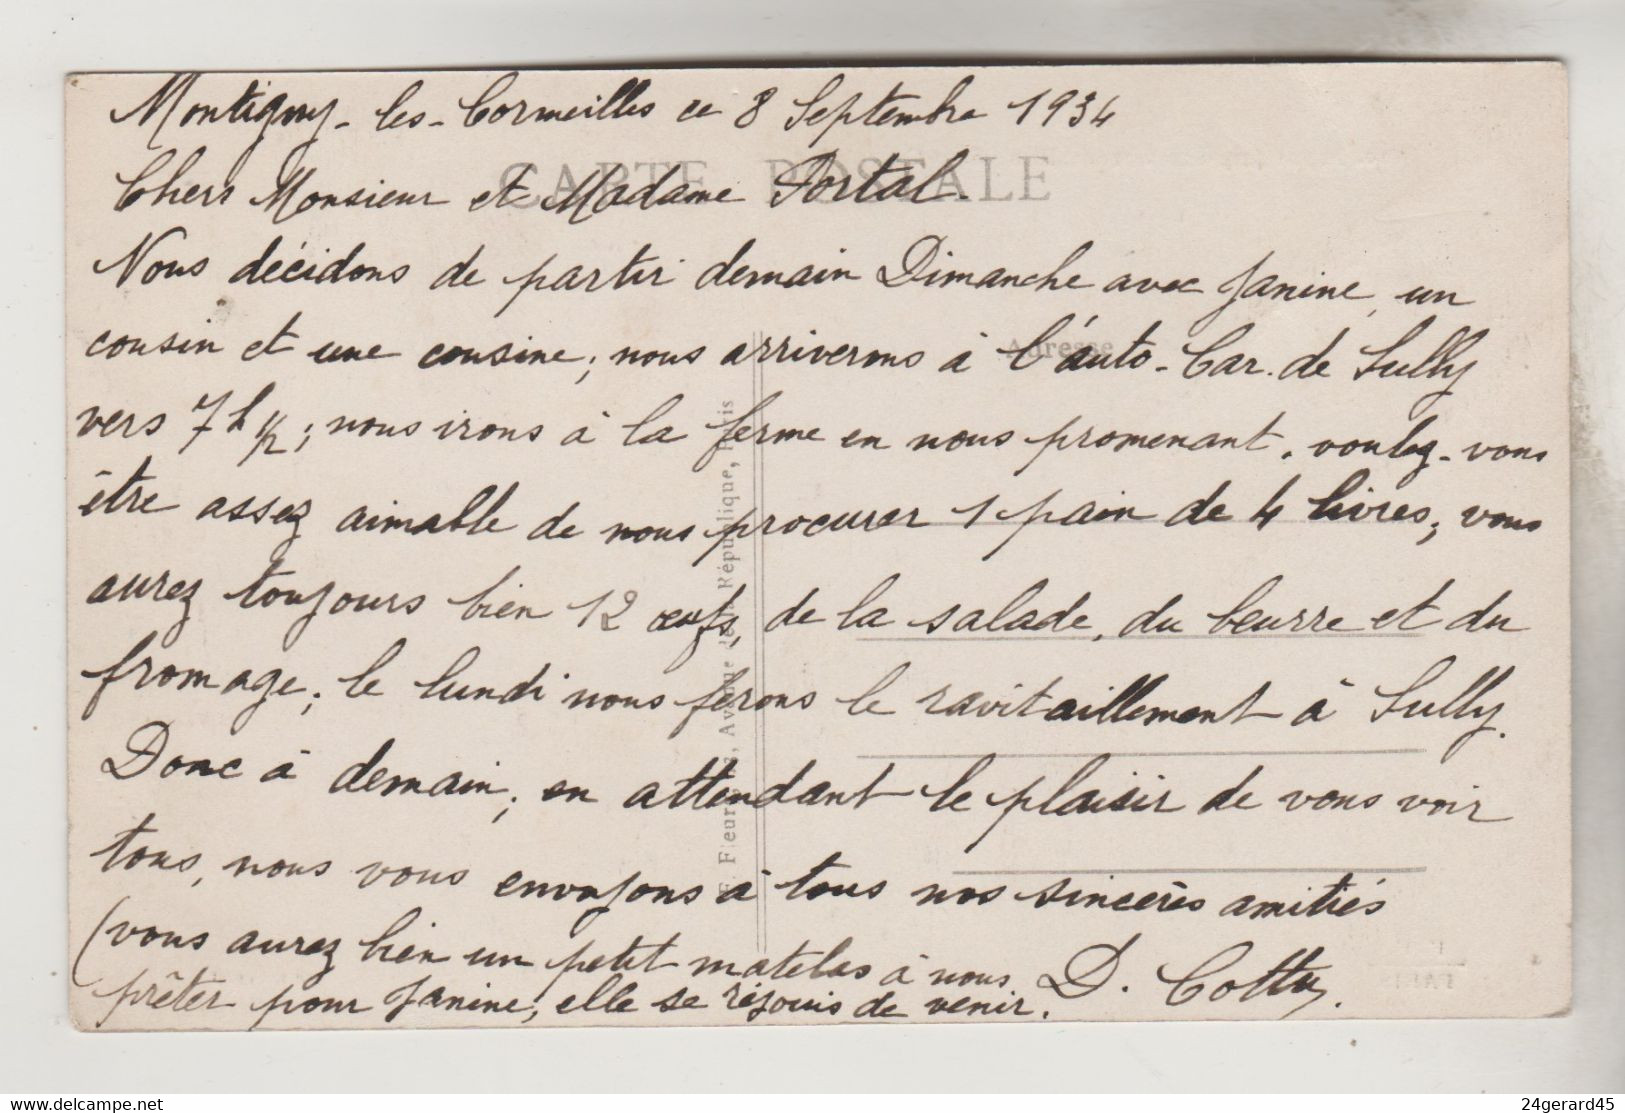 Montigny-les-Cormeilles ce 8 Septembre 1934
CARTE POSTALE
Chers Monsieur et Madame Portal.
Nous décidons de partir demain Dimanche avec Janine, un
cousin et une cousine; nous arriverons à l'auto-Car. de Sully
Adresse
vers 7h 1/2; nous irons à la ferme en nous promenant. voulez-vous
être assez aimable de nous procurer 1 pain de 4 livres; vous
aurez toujours bien 12 œufs, de la salade, du beurre et du
fromage; le lundi nous ferons le ravitaillement à Sully.
Donc à demain; en attendant le plaisir de vous voir
tous, nous vous envoyons à tous nos sincères amitiés
(vous aurez bien un petit matelas à nous
prêter pour Janine, elle se réjouis de venir.
D. Cottu
Avenue de la République, Paris
24gerard45